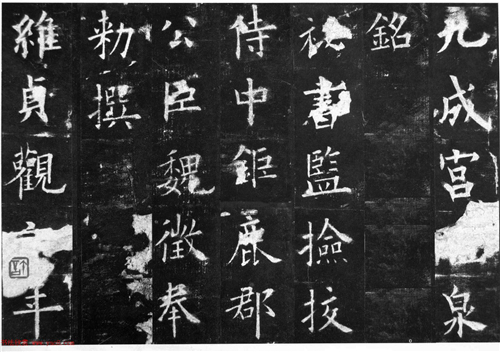 九成宮泉
銘
秘書監撿挍
侍中鉅鹿郡
公臣魏徵奉
勑撰
維貞觀年